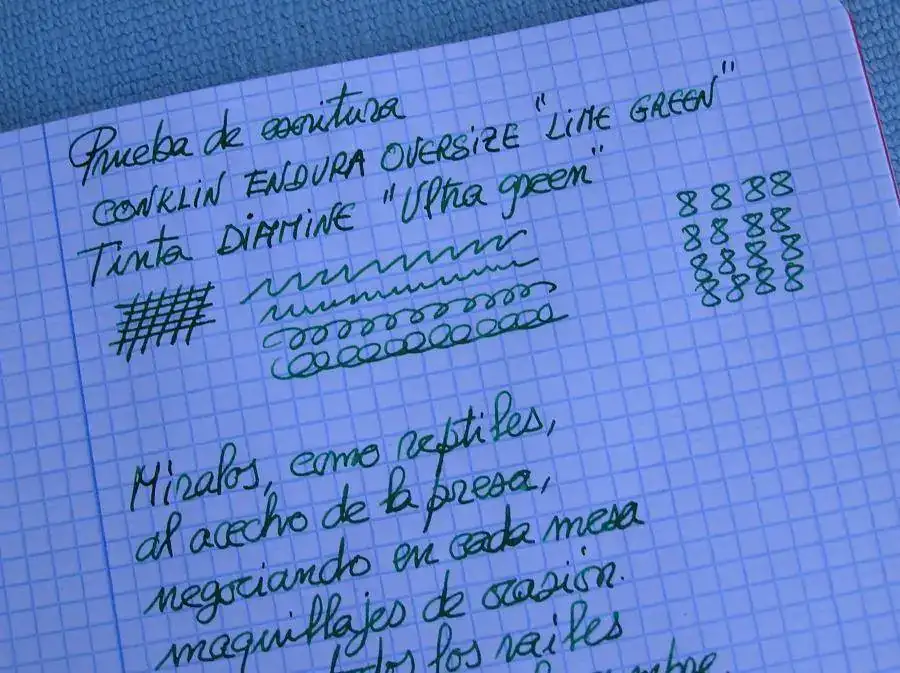 Prueba de escritura
CONKLIN ENDURA OVERSIZE "LIME GREEN"
Tinta DIAMINE "Ultra green"
8 8 8 8
8 8 8 8
8 8 8 8
8 8 8 8
Miralos, como reptiles,
al acecho de la presa,
negociando en cada mesa
maquillajes de ocasión.
los railes